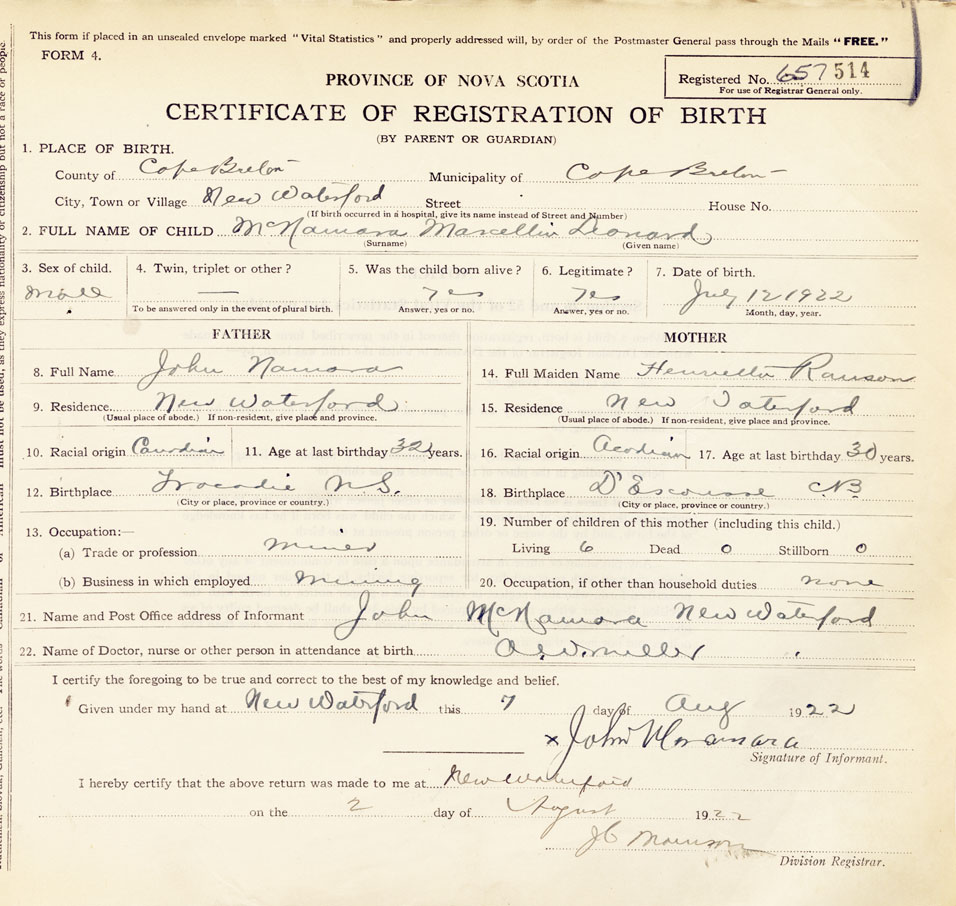 This form if placed in an unsealed envelope marked "Vital Statistics" and properly addressed will, by order of the Postmaster General pass through the Mails "FREE."
FORM 4.
PROVINCE OF NOVA SCOTIA
Registered No. 657 514
For use of Registrar General only.
CERTIFICATE OF REGISTRATION OF BIRTH
(BY PARENT OR GUARDIAN)
1. PLACE OF BIRTH.
County of Cape Breton Municipality of Cape Breton
City, Town or Village New Waterford Street House No.
(If birth occurred in a hospital, give its name instead of Street and Number)
2. FULL NAME OF CHILD McNamara Marcellin Leonard
(Surname) (Given name)
3. Sex of child. 4. Twin, triplet or other? 5. Was the child born alive? 6. Legitimate? 7. Date of birth.
Male — Yes Yes July 12 1922
To be answered only in the event of plural birth. Answer, yes or no. Answer, yes or no. Month, day, year.
FATHER MOTHER
8. Full Name John Namara 14. Full Maiden Name Henrietta
9. Residence New Waterford 15. Residence New Waterford
(Usual place of abode.) If non-resident, give place and province. (Usual place of abode.) If non-resident, give place and province.
10. Racial origin Canadian 11. Age at last birthday 32 years. 16. Racial origin Acadian 17. Age at last birthday 30 years.
12. Birthplace Tracadie N.S. 18. Birthplace D'Escousse C.B
(City or place, province or country.) (City or place, province or country.)
13. Occupation:— 19. Number of children of this mother (including this child.)
(a) Trade or profession Miner Living 6 Dead 0 Stillborn 0
(b) Business in which employed Mining 20. Occupation, if other than household duties none
21. Name and Post Office address of Informant John McNamara New Waterford
22. Name of Doctor, nurse or other person in attendance at birth Miller
I certify the foregoing to be true and correct to the best of my knowledge and belief.
Given under my hand at New Waterford this 7 day of Aug 1922
x John McNamara
Signature of Informant.
I hereby certify that the above return was made to me at New Waterford
on the 2 day of August 1922
Division Registrar.